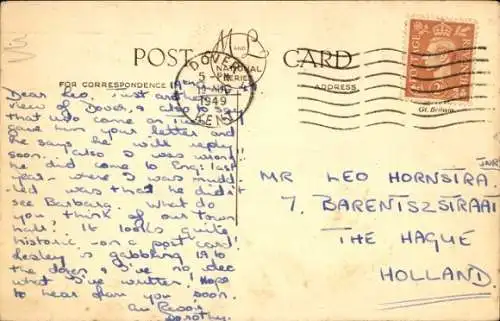 POST CARD
M and L
NATIONAL
SERIES
FOR CORRESPONDENCE
ADDRESS
DOVER
5 - PM
11 AUG
1949
KENT
POSTAGE REVENUE
Gt. Britain.
Dear Leo, Just another
view of Dover, & also to say
that Udo came on
gave him your letter and
he says he will reply
soon. (also I was wrong
he did come to Eng: last
year - where I was mudd
-led was that he didn't
see Barbara. What do
you think of our town
hall? It looks quite
historic - on a post card!
Lesley is gabbling 19 to
the dozen & I've no idea
what I've written! Hope
to hear from you soon.
Au Revoir
Dorothy.
JNR
MR LEO HORNSTRA
7, BARENTSZSTRAAT
THE HAGUE
HOLLAND